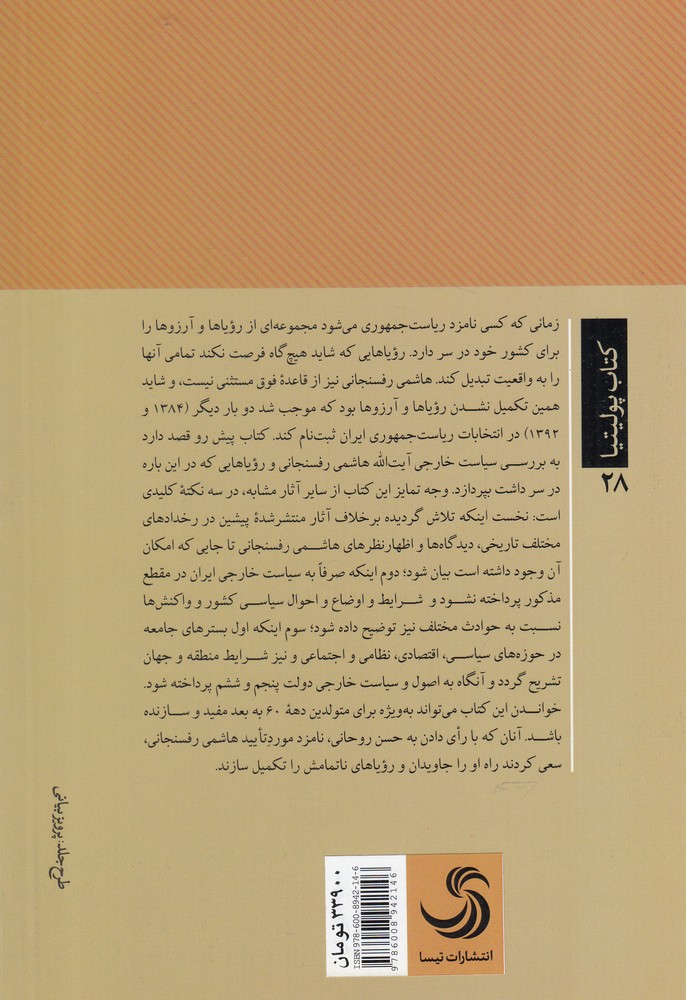 کتاب پولیتیا
۲۸
زمانی که کسی نامزد ریاست‌جمهوری می‌شود مجموعه‌ای از رؤیاها و آرزوها را
برای کشور خود در سر دارد. رؤیاهایی که شاید هیچ‌گاه فرصت نکند تمامی آنها
را به واقعیت تبدیل کند. هاشمی رفسنجانی نیز از قاعدۀ فوق مستثنی نیست، و شاید
همین تکمیل نشدن رؤیاها و آرزوها بود که موجب شد دو بار دیگر (۱۳۸۴ و
۱۳۹۲) در انتخابات ریاست‌جمهوری ایران ثبت‌نام کند. کتاب پیش رو قصد دارد
به بررسی سیاست خارجی آیت‌الله هاشمی رفسنجانی و رؤیاهایی که در این باره
در سر داشت بپردازد. وجه تمایز این کتاب از سایر آثار مشابه، در سه نکتۀ کلیدی
است: نخست اینکه تلاش گردیده برخلاف آثار منتشرشدۀ پیشین در رخدادهای
مختلف تاریخی، دیدگاه‌ها و اظهارنظرهای هاشمی رفسنجانی تا جایی که امکان
آن وجود داشته است بیان شود؛ دوم اینکه صرفاً به سیاست خارجی ایران در مقطع
مذکور پرداخته نشود و شرایط و اوضاع و احوال سیاسی کشور و واکنش‌ها
نسبت به حوادث مختلف نیز توضیح داده شود؛ سوم اینکه اول بسترهای جامعه
در حوزه‌های سیاسی، اقتصادی، نظامی و اجتماعی و نیز شرایط منطقه و جهان
تشریح گردد و آنگاه به اصول و سیاست خارجی دولت پنجم و ششم پرداخته شود.
خواندن این کتاب می‌تواند به‌ویژه برای متولدین دهۀ ۶۰ به بعد مفید و سازنده
باشد. آنان که با رأی دادن به حسن روحانی، نامزد موردتأیید هاشمی رفسنجانی،
سعی کردند راه او را جاویدان و رؤیاهای ناتمامش را تکمیل سازند.
طرح جلد: پرویز بیانی
۳۳۹۰۰ تومان
ISBN 978-600-8942-14-6
9786008942146
انتشارات تیسا